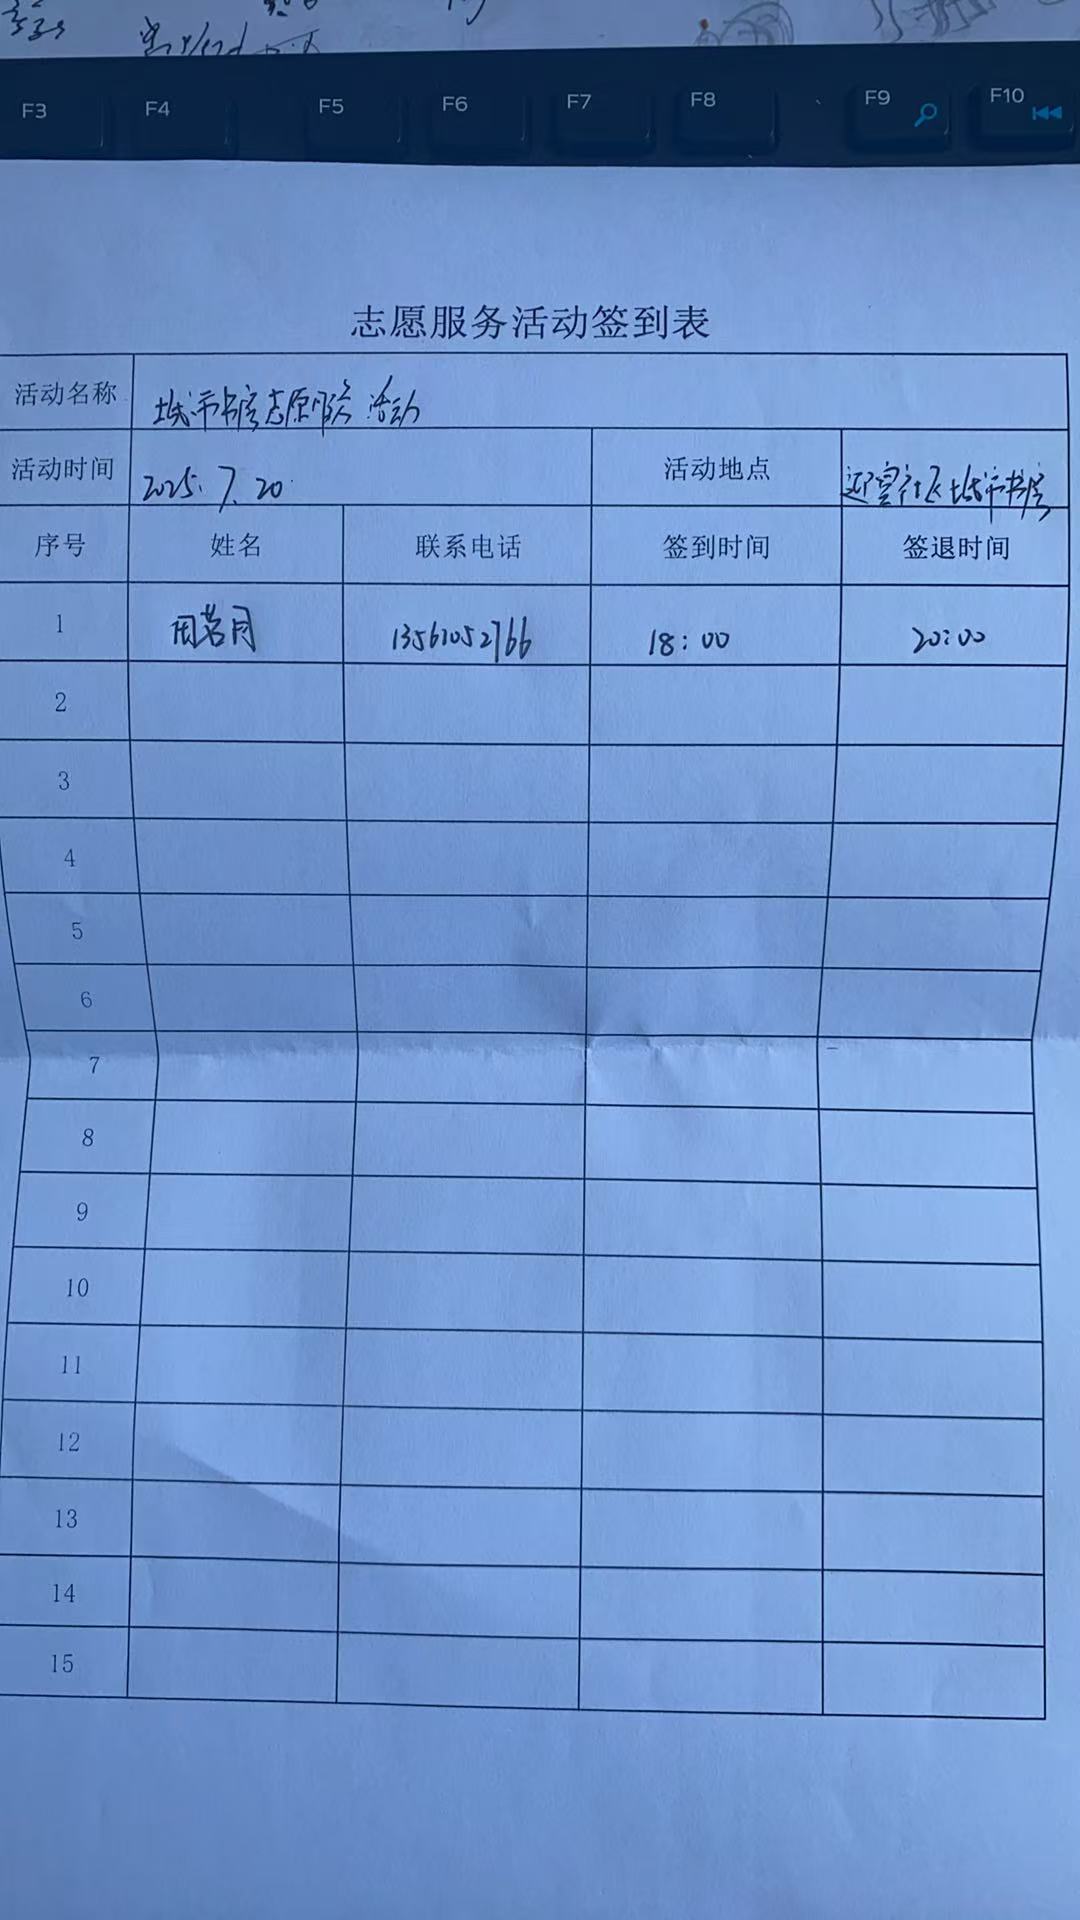 F3 F4 F5 F6 F7 F8 F9 F10
志愿服务活动签到表
活动名称 城市书房志愿服务活动
活动时间 2025.7.20 活动地点 社区城市书房
序号 姓名 联系电话 签到时间 签退时间
1 周若月 13561052766 18:00 20:00
2
3
4
5
6
7
8
9
10
11
12
13
14
15